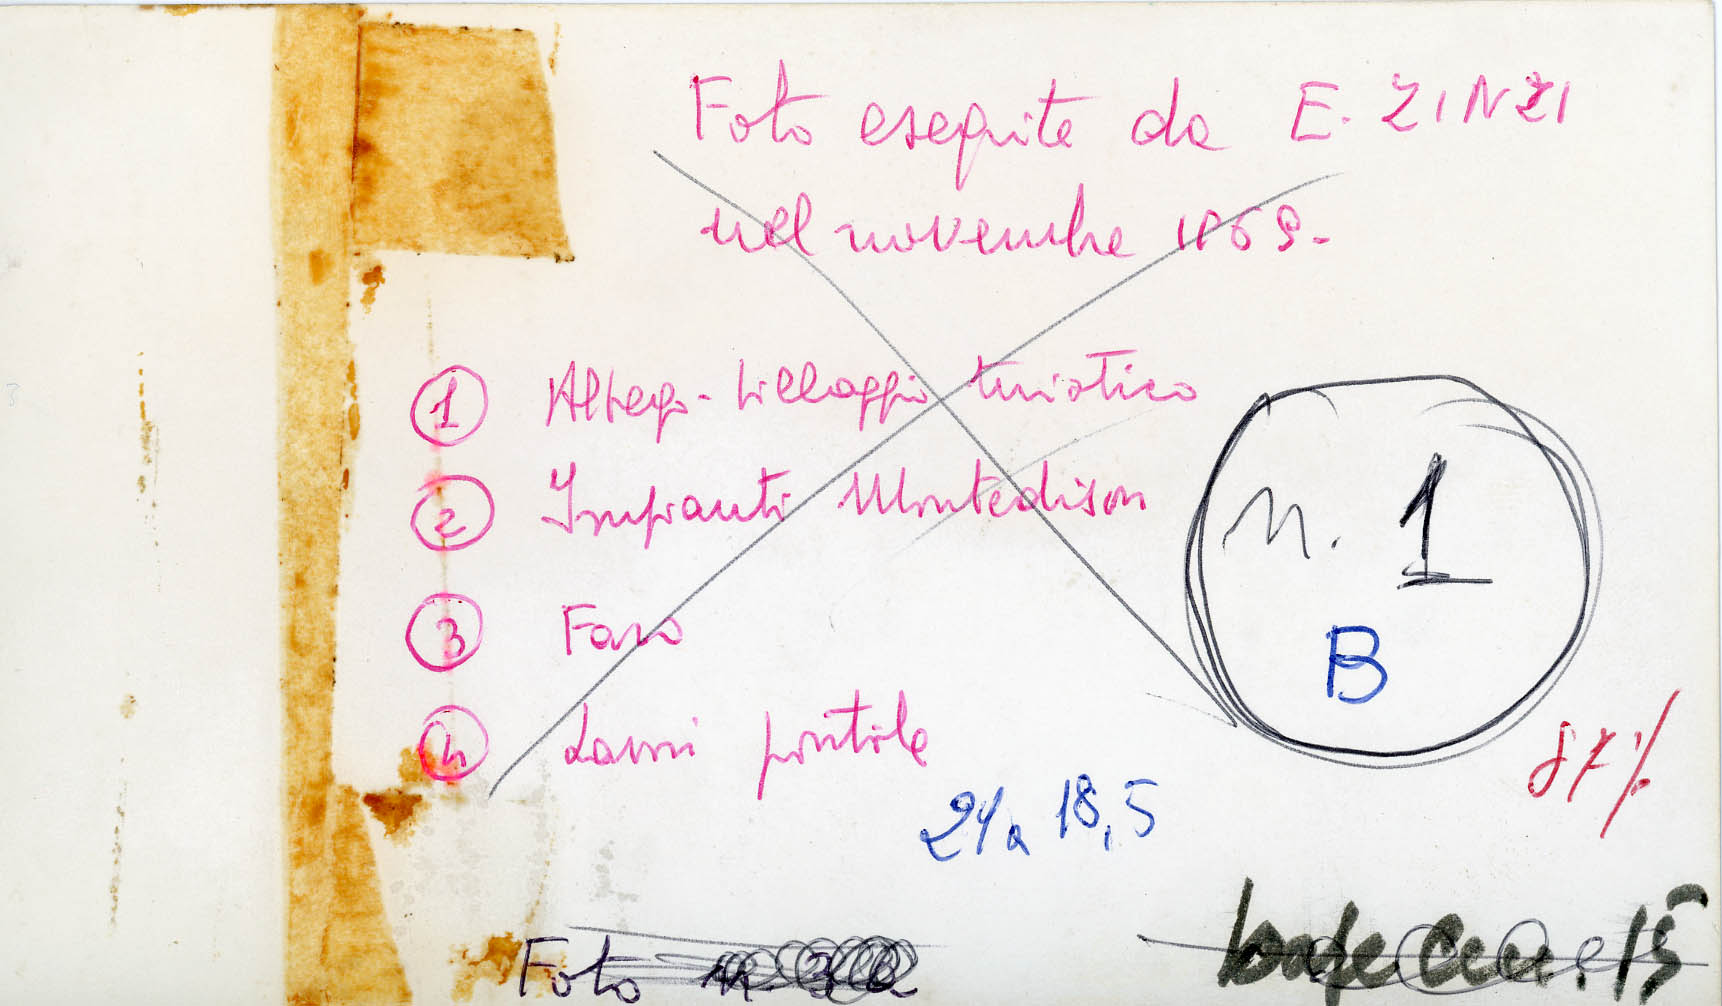 Foto eseguite da E. ZINZI
nel novembre 1969.
1 Albergo-villaggio turistico
2 Impianti Montedison
3 Faro
4 Lavori pontile
n. 1
B
87%
21 a 18,5
Foto n. 3 B
15